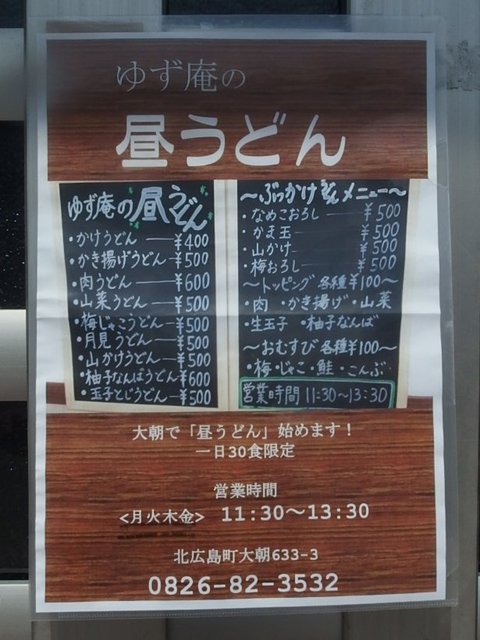 ゆず庵の
昼うどん
ゆず庵の昼うどん
・かけうどん ―― ¥400
・かき揚げうどん ― ¥500
・肉うどん ―― ¥600
・山菜うどん ―― ¥500
・梅じゃこうどん ― ¥500
・月見うどん ―― ¥500
・山かけうどん ― ¥500
・柚子なんばうどん ¥600
・玉子とじうどん ― ¥500
〜ぶっかけうどんメニュー〜
・なめこおろし ― ¥500
・かま玉 ―― ¥500
・山かけ ―― ¥500
・梅おろし ―― ¥500
〜トッピング 各種¥100〜
・肉 ・かき揚げ ・山菜
・生玉子 ・柚子なんば
〜おむすび 各種¥100〜
・梅・じゃこ・鮭・こんぶ
営業時間 11:30〜13:30
大朝で「昼うどん」始めます！
一日30食限定
営業時間
<月火木金> 11:30〜13:30
北広島町大朝633-3
0826-82-3532